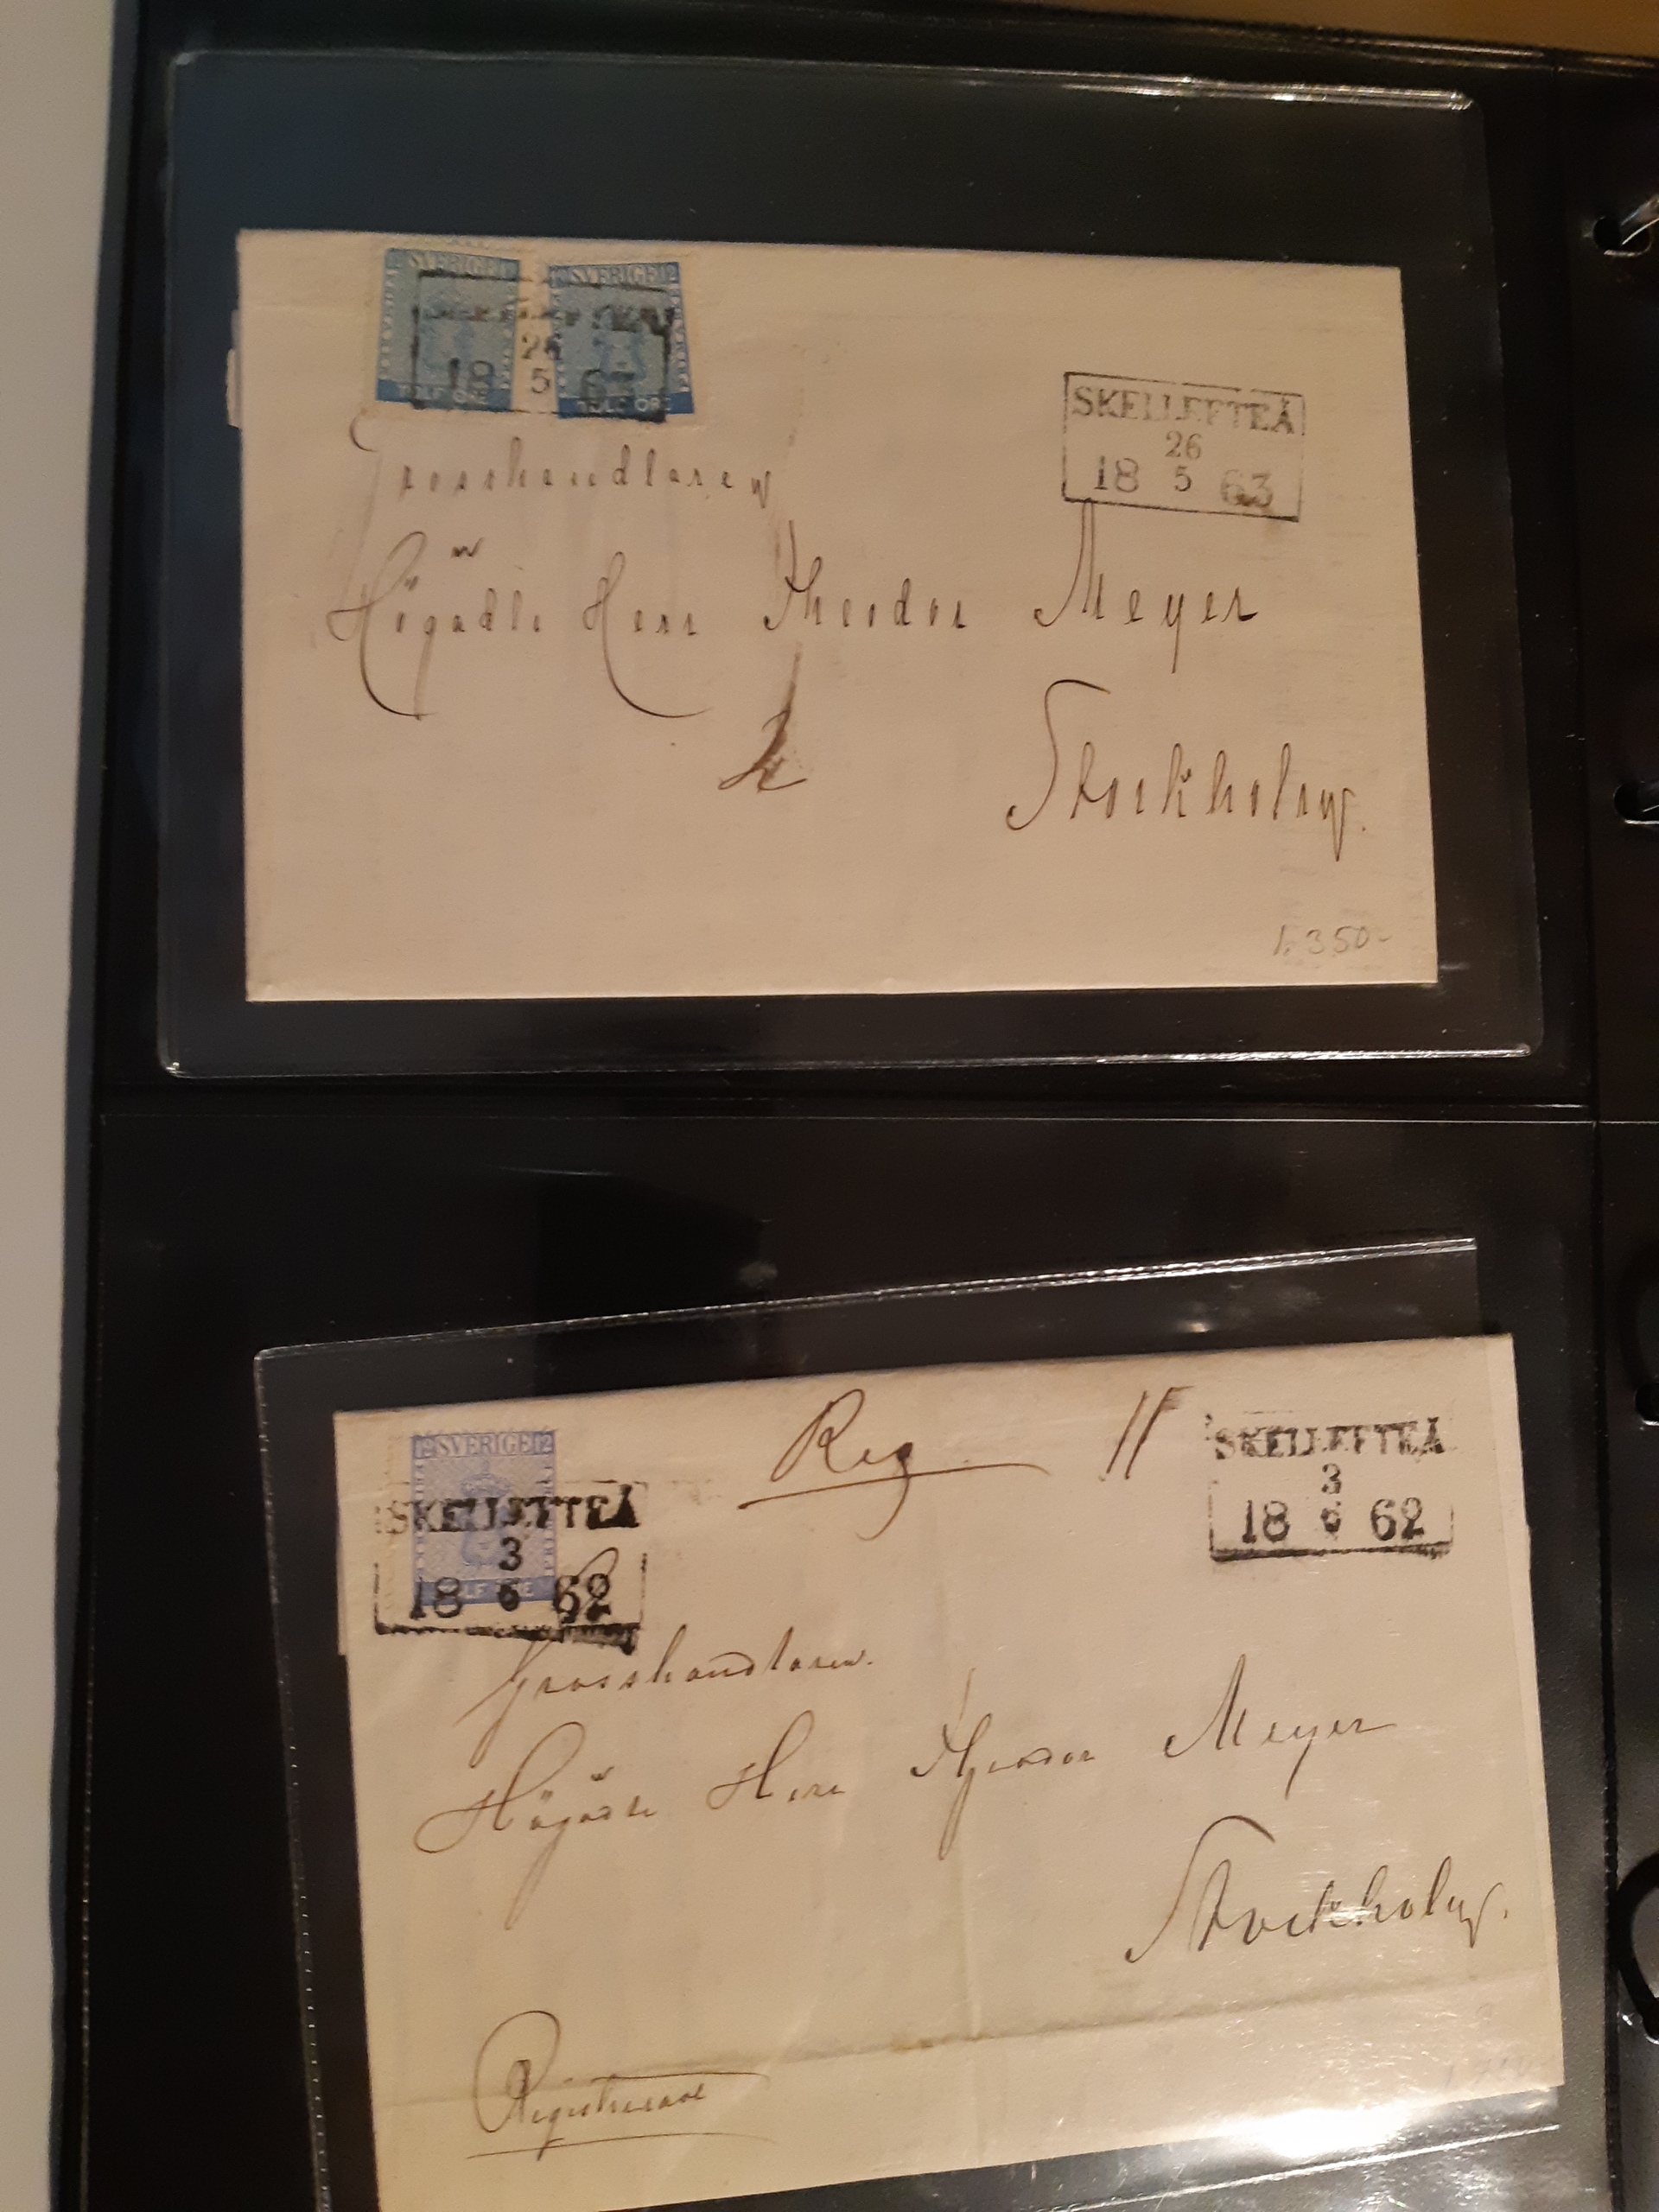 SVERIGE 12 SVERIGE 12
26
18 5 63
TOLF ÖRE TOLF ÖRE
SKELLEFTEÅ
26
18 5 63
Grosshandlaren
Högädle Herr Theodor Meyer
Stockholm.
1.350-
Reg
12 SVERIGE 12
SKELLEFTEÅ
3
18 6 62
SKELLEFTEÅ
3
18 6 62
Grosshandlaren
Högädle Herr Theodor Meyer
Stockholm.
Registrerade